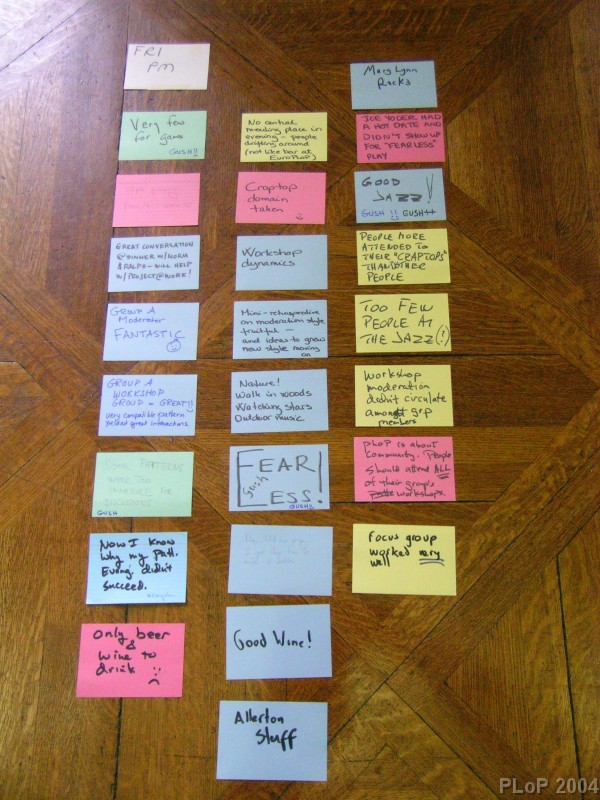 FRI
PM
Very few
for gams
GUSH!!
GREAT CONVERSATION
@DINNER W/NORM
& RALPH - WILL HELP
W/PROJECT@WORK!
GROUP A
Moderator
FANTASTIC
GROUP A
WORKSHOP
GROUP = GREAT!!
very compatible pattern
yielded great interactions.
PATTERNS
WERE TOO
THE
GUSH
Now I know
why my patt.
Evang. didn't
succeed.
Only beer
&
wine to
drink
No central
meeting place in
evening - people
drifting around
(not like bar at
EuroPLoP)
Craptop
domain
taken
Workshop
dynamics
Mini-retrospective
on moderation style
fruitful —
and ideas to grow
new style moving
on
Nature!
Walk in woods
Watching stars
Outdoor music
FEAR
LESS!
Gush
GUSH!!
Good Wine!
Allerton
Staff
Mary Lynn
Rocks
JOE YODER HAD
A HOT DATE AND
DIDN'T SHOW UP
FOR "FEARLESS"
PLAY
GOOD
JAZZ!
GUSH !! GUSH++
PEOPLE MORE
ATTENDED TO
THEIR "CRAPTOPS"
THAN OTHER
PEOPLE
TOO FEW
PEOPLE AT
THE JAZZ(!)
Workshop
moderation
didn't circulate
amongst grp
members
PLoP is about
Kommunity. People
should attend ALL
of their group's
workshops.
Focus group
worked very
well
PLoP 2004